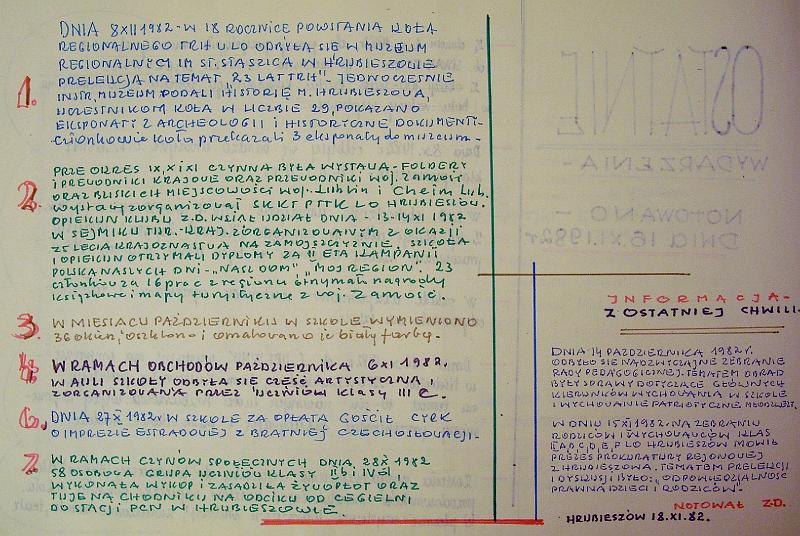 1. DNIA 8XII1982-W 18 ROCZNICĘ POWSTANIA KOŁA
REGIONALNEGO TRH U LO ODBYŁA SIĘ W MUZEUM
REGIONALNYM IM ST. STASZICA W HRUBIESZOWIE
PRELEKCJA NA TEMAT "23 LAT TRH". JEDNOCZEŚNIE
INSTR. MUZEUM PODALI "HISTORIĘ M. HRUBIESZOWA,
UCZESTNIKOM KOŁA W LICZBIE 29, POKAZANO
EKSPONATY Z ARCHEOLOGII I HISTORYCZNE DOKUMENTY-
członkowie koła przekazali 3 eksponaty do muzeum-
2. PRZE OKRES IX, X i XI CZYNNA BYŁA WYSTAWA-FOLDERY
I PREWODNIKI KRAJOWE ORAZ PRZEWODNIKI WOJ. ZAMOŚĆ
ORAZ BLISKICH MIEJSCOWOŚCI WOJ. Lublin i Chełm Lub.
wystawę zorganizował SKKT PTTK LO HRUBIESZÓW.
OPIEKUN KLUBU Z.D. WZIĄŁ UDZIAŁ DNIA -13-14 XI 1982
W SEJMIKU TUR.-KRAJ. ZORGANIZOWANYM Z OKAZJI
25 LECIA KRAJOZNASTWA NA ZAMOJSZCZYŹNIE. SZKOŁA
I OPIEKUN OTRZYMALI DYPLOMY ZA II ETAP KAMPANII
POLSKA NASZYCH DNI-"NASZ DOM" "MÓJ REGION". 23
członków za 16 prac z regionu otrzymali nagrody
książkowe i mapy turystyczne z woj. Zamość.
3. W MIESIĄCU PAŹDZIERNIKU W SZKOLE WYMIENIONO
36 okien, oszklono i pomalowano je białą farbą.
4. W RAMACH OBCHODÓW PAŹDZIERNIKA 6 XI 1982.
W AULI SZKOŁY ODBYŁA SIĘ CZĘŚĆ ARTYSTYCZNA,
ZORGANIZOWANA PRZEZ UCZNIÓW KLASY III C.
6. DNIA 27 X 1982r. W SZKOLE ZA OPŁATĄ GOŚCIŁ CYRK
O IMPREZIE ESTRADOWEJ Z BRATNIEJ CZECHOSŁOWACJI-
7. W RAMACH CZYNÓW SPOŁECZNYCH DNIA 28 X 1982
58 OSOBOWA GRUPA UCZNIÓW KLASY II b i IV E,
WYKONAŁA WYKOP I ZASADZIŁA ŻYWOPŁOT ORAZ
TUJE NA CHODNIKU NA ODCIKU OD CEGIELNI
DO STACJI PCN W HRUBIESZOWIE.
OSTATNIE
WYDARZENIA-
NOTOWANO-
DNIA 16.XI.1982r
INFORMACJA-
Z OSTATNIEJ CHWILI-
DNIA 14 PAŹDZIERNIKA 1982r.
ODBYŁO SIĘ NADZWYCZAJNE ZEBRANIE
RADY PEDAGOGICZNEJ. TEMATEM OBRAD
BYŁY SPRAWY DOTYCZĄCE GŁÓWNYCH
KIERUNKÓW WYCHOWANIA W SZKOLE
I WYCHOWANIE PATRIOTYCZNE MŁODZIEŻY.
W DNIU 15 XI 1982r. NA ZEBRANIU
RODZICÓW I WYCHOWAWCÓW KLAS
I A, B, C, D, E, F LO HRUBIESZÓW MÓWIŁ
PREZES PROKURATURY REJONOWEJ
Z HRUBIESZOWA. TEMATEM PRELEKCJI
I DYSKUSJI BYŁO: ODPOWIEDZIALNOŚĆ
PRAWNA DZIECI I RODZICÓW.
NOTOWAŁ Z.D.
HRUBIESZÓW 18.XI.82.